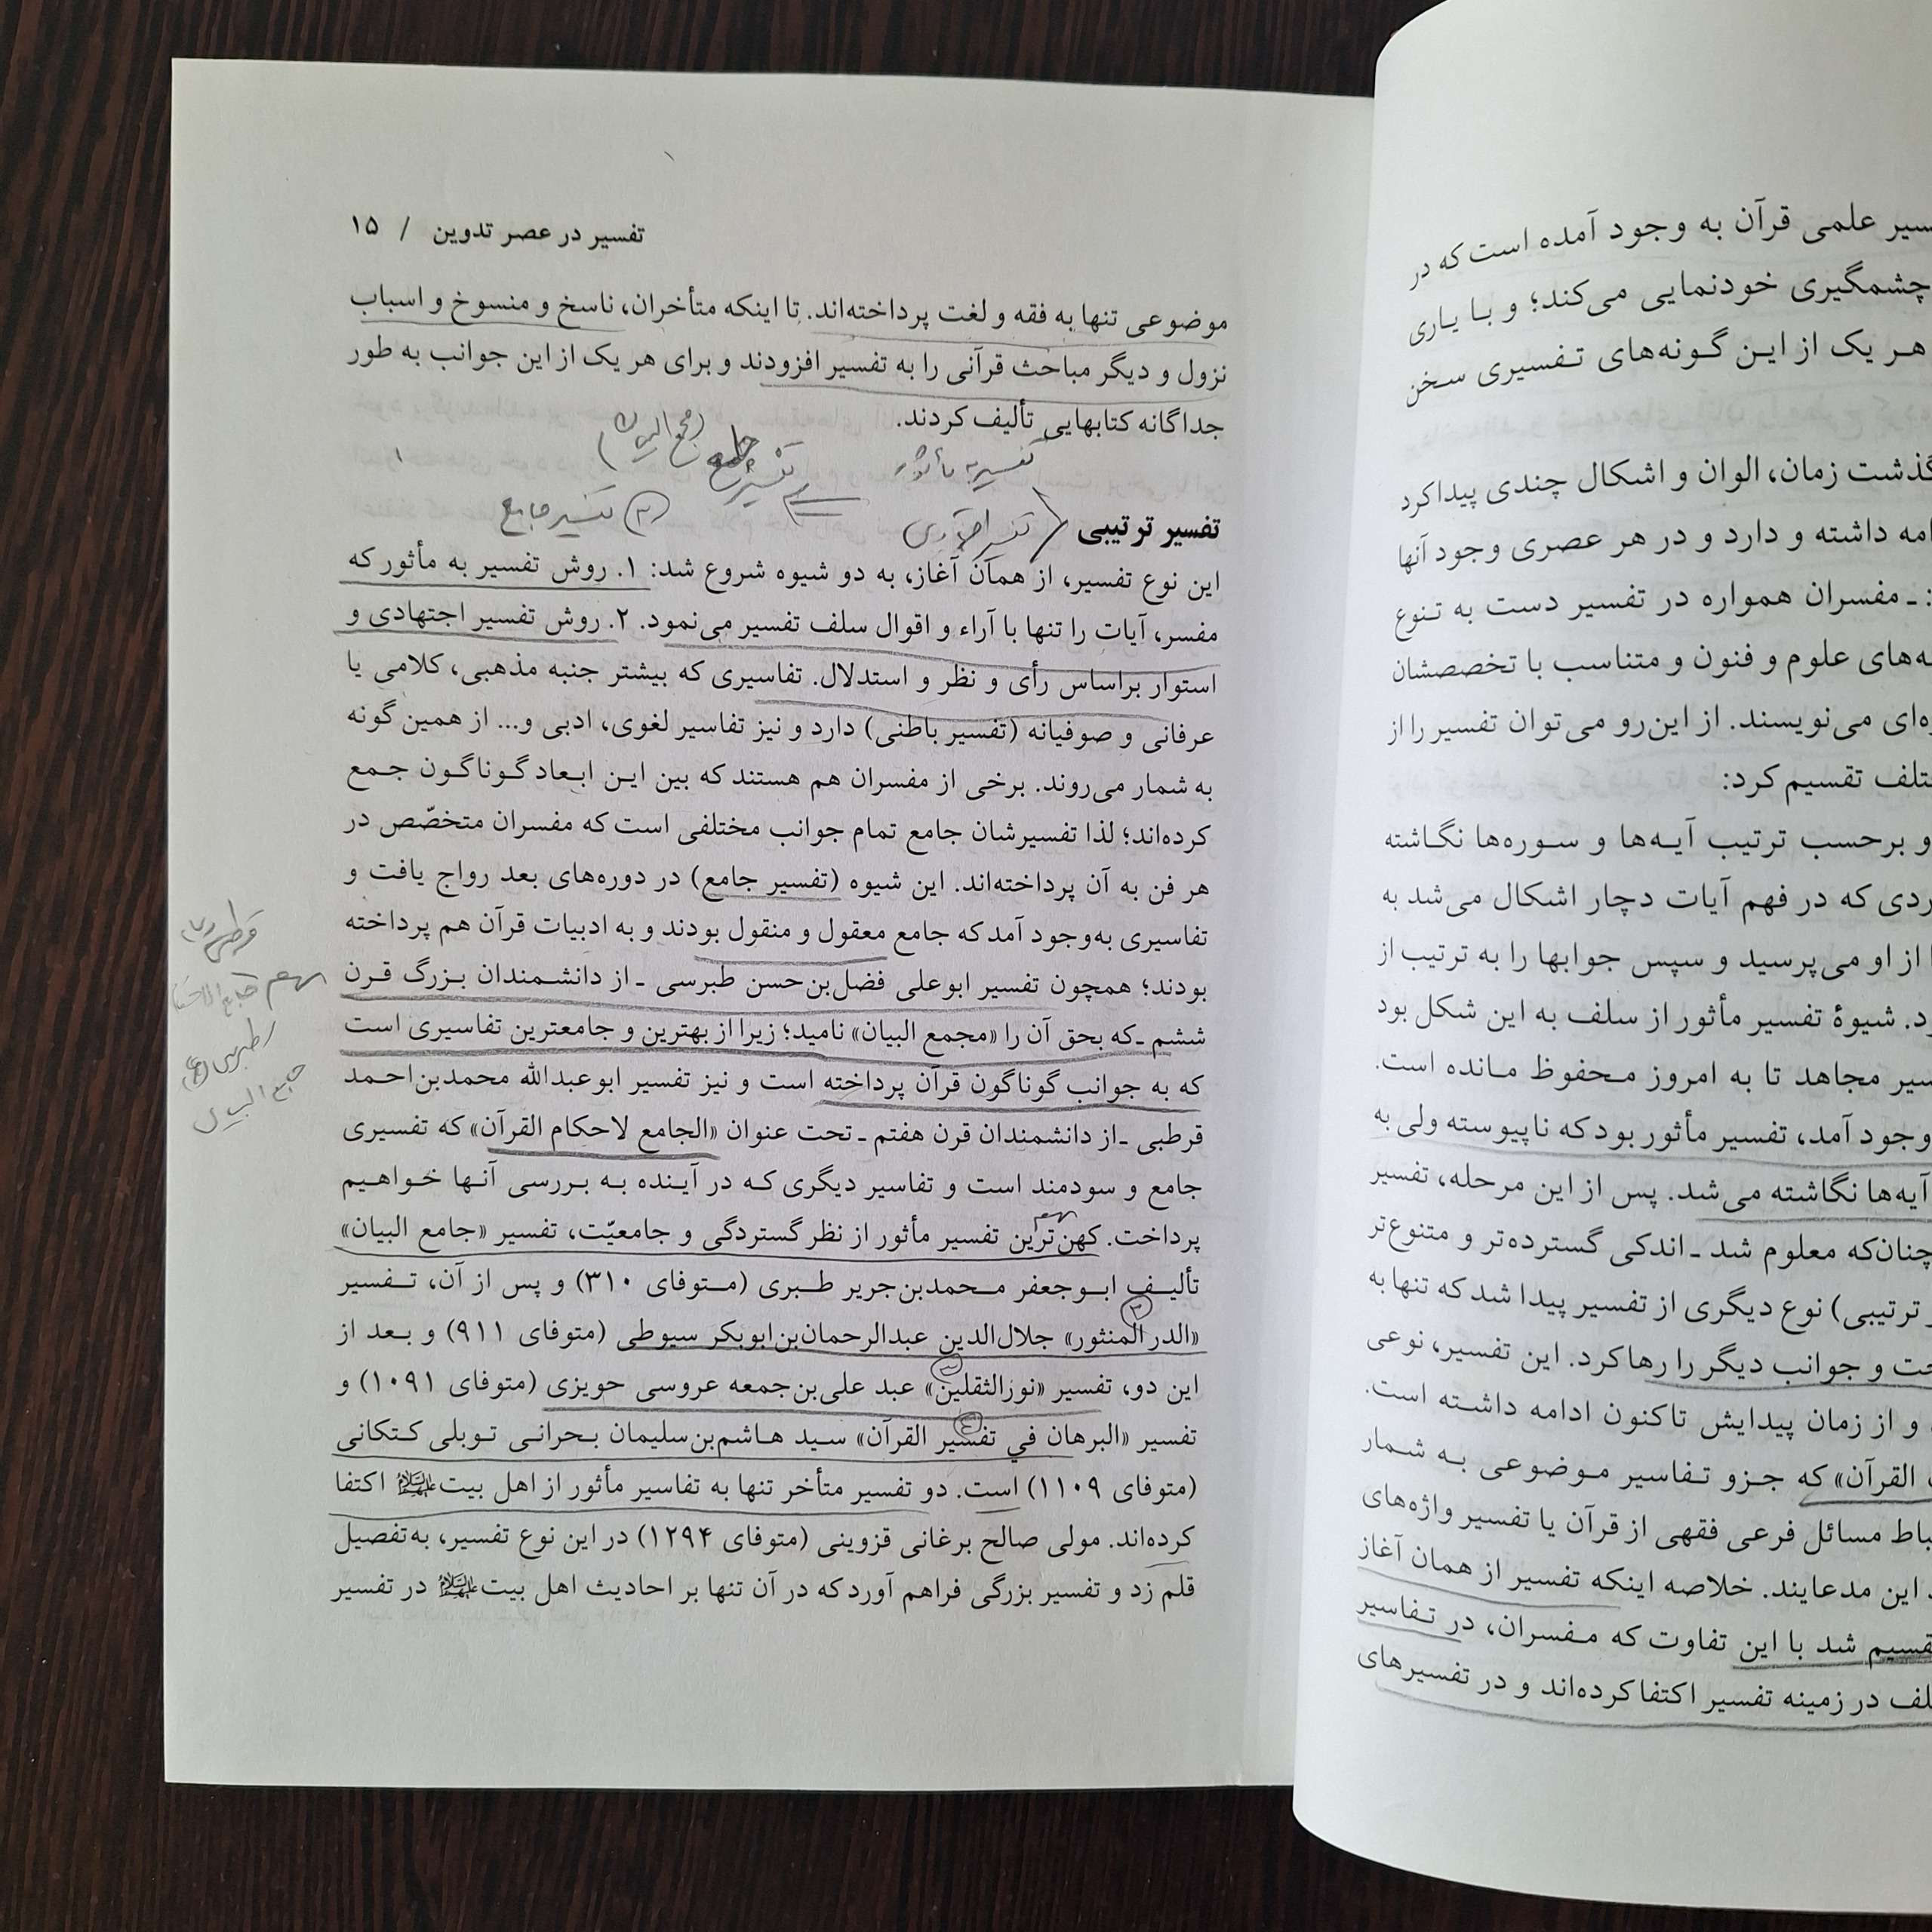 تفسیر در عصر تدوین / ۱۵
موضوعی تنها به فقه و لغت پرداخته‌اند. تا اینکه متأخران، ناسخ و منسوخ و اسباب
نزول و دیگر مباحث قرآنی را به تفسیر افزودند و برای هر یک از این جوانب به طور
جداگانه کتابهایی تألیف کردند.
تفسیر به مأثور
تفسیر جامع
تفسیر ترتیبی
تفسیر اجتهادی
(۳) تفسیر جامع
این نوع تفسیر، از همان آغاز، به دو شیوه شروع شد: ۱. روش تفسیر به مأثور که
مفسر، آیات را تنها با آراء و اقوال سلف تفسیر می‌نمود. ۲. روش تفسیر اجتهادی و
استوار براساس رأی و نظر و استدلال. تفاسیری که بیشتر جنبه مذهبی، کلامی یا
عرفانی و صوفیانه (تفسیر باطنی) دارد و نیز تفاسیر لغوی، ادبی و... از همین گونه
به شمار می‌روند. برخی از مفسران هم هستند که بین این ابعاد گوناگون جمع
کرده‌اند؛ لذا تفسیرشان جامع تمام جوانب مختلفی است که مفسران متخصّص در
هر فن به آن پرداخته‌اند. این شیوه (تفسیر جامع) در دوره‌های بعد رواج یافت و
تفاسیری به‌وجود آمد که جامع معقول و منقول بودند و به ادبیات قرآن هم پرداخته
بودند؛ همچون تفسیر ابوعلی فضل‌بن‌حسن طبرسی ـ از دانشمندان بزرگ قرن
ششم ـ که بحق آن را «مجمع البیان» نامید؛ زیرا از بهترین و جامعترین تفاسیری است
که به جوانب گوناگون قرآن پرداخته است و نیز تفسیر ابوعبدالله محمدبن‌احمد
قرطبی ـ از دانشمندان قرن هفتم ـ تحت عنوان «الجامع لاحکام القرآن» که تفسیری
جامع و سودمند است و تفاسیر دیگری که در آینده به بررسی آنها خواهیم
پرداخت. کهن‌ترین تفسیر مأثور از نظر گستردگی و جامعیّت، تفسیر «جامع البیان»
تألیف ابوجعفر محمدبن‌جریر طبری (متوفای ۳۱۰) و پس از آن، تفسیر
«الدر المنثور» جلال‌الدین عبدالرحمان‌بن‌ابوبکر سیوطی (متوفای ۹۱۱) و بعد از
این دو، تفسیر «نورالثقلین» عبد علی‌بن‌جمعه عروسی حویزی (متوفای ۱۰۹۱) و
تفسیر «البرهان في تفسیر القرآن» سید هاشم‌بن‌سلیمان بحرانی توبلی کتکانی
(متوفای ۱۱۰۹) است. دو تفسیر متأخر تنها به تفاسیر مأثور از اهل بیت علیهم‌السلام اکتفا
کرده‌اند. مولی صالح برغانی قزوینی (متوفای ۱۲۹۴) در این نوع تفسیر، به‌تفصیل
قلم زد و تفسیر بزرگی فراهم آورد که در آن تنها بر احادیث اهل بیت علیهم‌السلام در تفسیر
قرطبی
مهم
طبری
جامع البیان
علمی قرآن به وجود آمده است که در
چشمگیری خودنمایی می‌کند؛ و با یاری
هر یک از این گونه‌های تفسیری سخن
گذشت زمان، الوان و اشکال چندی پیدا کرد
داشته و دارد و در هر عصری وجود آنها
ـ مفسران همواره در تفسیر دست به تنوع
علوم و فنون و متناسب با تخصصشان
می‌نویسند. از این‌رو می‌توان تفسیر را از
تقسیم کرد:
و برحسب ترتیب آیه‌ها و سوره‌ها نگاشته
که در فهم آیات دچار اشکال می‌شد به
از او می‌پرسید و سپس جوابها را به ترتیب از
شیوهٔ تفسیر مأثور از سلف به این شکل بود
مجاهد تا به امروز محفوظ مانده است.
وجود آمد، تفسیر مأثور بود که ناپیوسته ولی به
آیه‌ها نگاشته می‌شد. پس از این مرحله، تفسیر
چنان‌که معلوم شد ـ اندکی گسترده‌تر و متنوع‌تر
ترتیبی) نوع دیگری از تفسیر پیدا شد که تنها به
و جوانب دیگر را رها کرد. این تفسیر، نوعی
و از زمان پیدایش تاکنون ادامه داشته است.
القرآن» که جزو تفاسیر موضوعی به شمار
مسائل فرعی فقهی از قرآن یا تفسیر واژه‌های
این مدعایند. خلاصه اینکه تفسیر از همان آغاز
شد با این تفاوت که مفسران، در تفاسیر
در زمینه تفسیر اکتفا کرده‌اند و در تفسیرهای